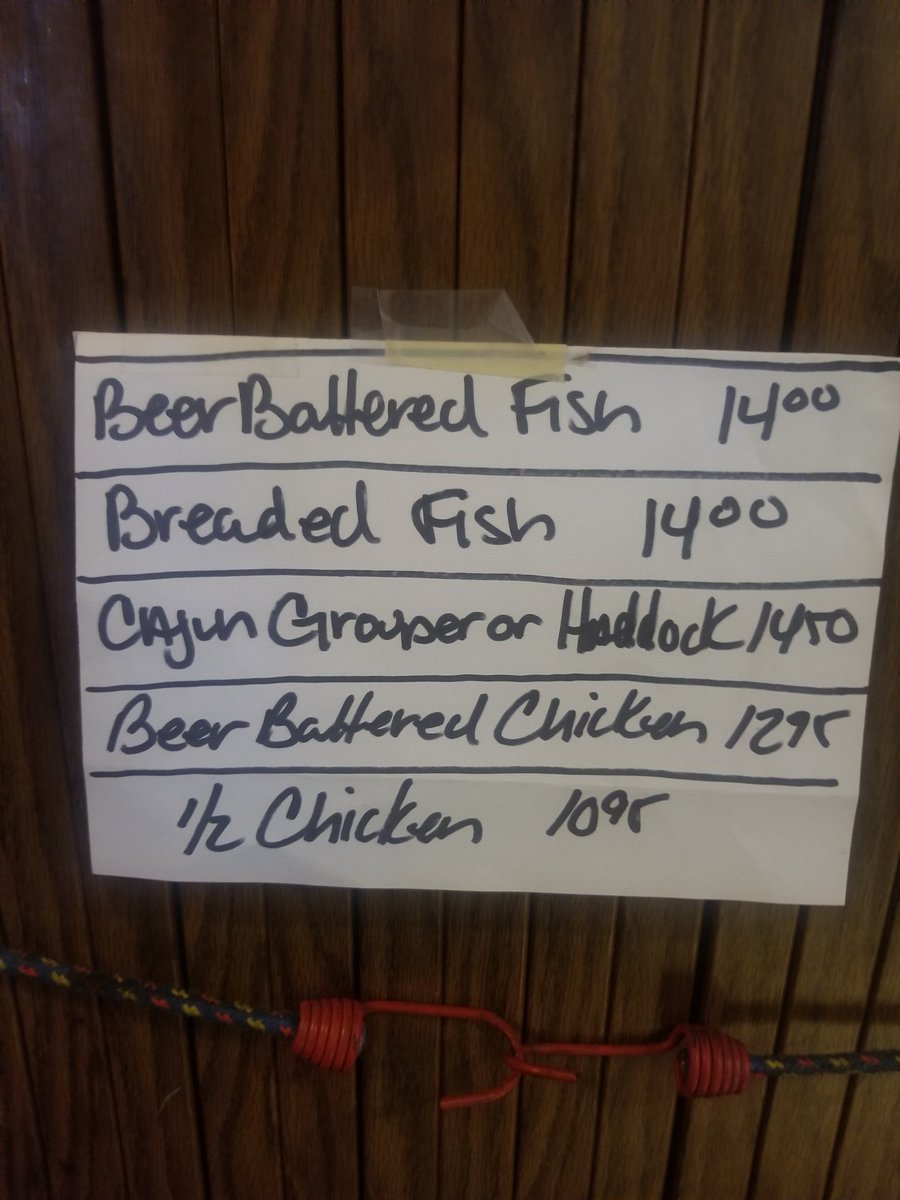 Beer Battered Fish 1400
Breaded Fish 1400
Cajun Grouper or Haddock 1450
Beer Battered Chicken 1295
1/2 Chicken 1095